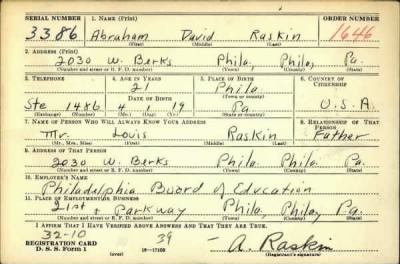 SERIAL NUMBER 1. NAME (Print) ORDER NUMBER
3386 Abraham David Raskin 1646
(First) (Middle) (Last)
2. ADDRESS (Print)
2030 W. Berks Phila. Phila, Pa.
(Number and street or R. F. D. number) (Town) (County) (State)
3. TELEPHONE 4. AGE IN YEARS 5. PLACE OF BIRTH 6. COUNTRY OF CITIZENSHIP
21 Phila
DATE OF BIRTH (Town or county)
Ste 1486 4 1 19 Pa U.S.A.
(Exchange) (Number) (Mo.) (Day) (Yr.) (State or country)
7. NAME OF PERSON WHO WILL ALWAYS KNOW YOUR ADDRESS 8. RELATIONSHIP OF THAT PERSON
Mr. Louis Raskin Father
(Mr., Mrs., Miss) (First) (Middle) (Last)
9. ADDRESS OF THAT PERSON
2030 W. Berks Phila. Phila. Pa.
(Number and street or R. F. D. number) (Town) (County) (State)
10. EMPLOYER'S NAME
Philadelphia Board of Education
11. PLACE OF EMPLOYMENT OR BUSINESS
21st + Parkway Phila, Phila, Pa.
(Number and street or R. F. D. number) (Town) (County) (State)
I AFFIRM THAT I HAVE VERIFIED ABOVE ANSWERS AND THAT THEY ARE TRUE.
32-10 39 A. Raskin
REGISTRATION CARD
D. S. S. Form 1 (over) 16—17105 (Registrant's signature)